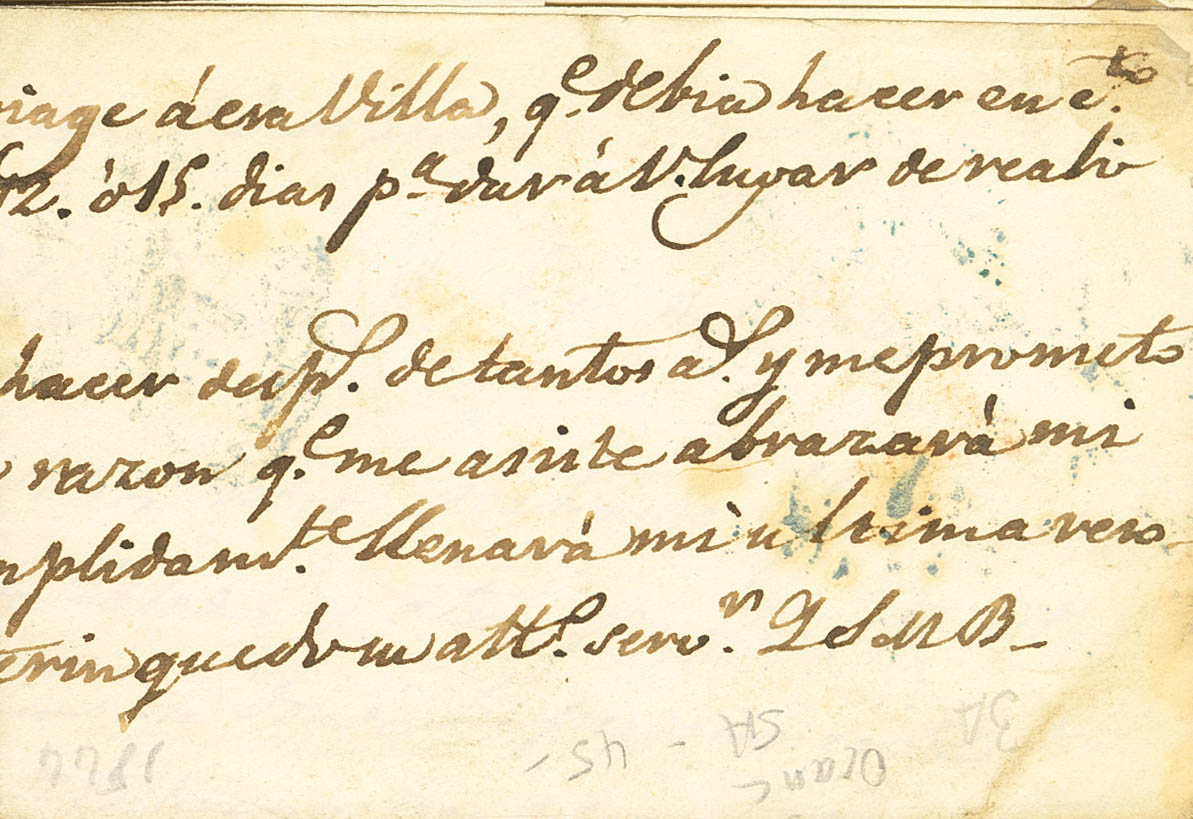 viage á esa Villa, q.e debia hacer en e.to
12. ó 15. dias p.a dar á V. lugar de reali
hacer desp.s de tantos a.s y me prometo
razon q.e me asiste abrazará mi
mplidam.te llenará mi ultima reso
terin quedo su att.o serv.r Q S M B
1822
45 -
SA
3A